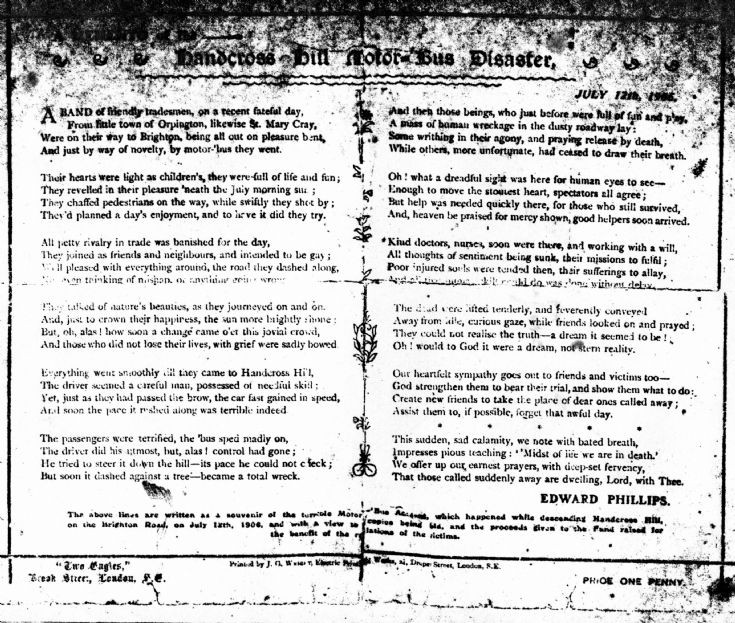 Handcross Hill Motor-Bus Disaster,
JULY 12th, 1906.
A BAND of friendly tradesmen, on a recent fateful day,
From little town of Orpington, likewise St. Mary Cray,
Were on their way to Brighton, being all out on pleasure bent,
And just by way of novelty, by motor-'bus they went.
Their hearts were light as children's, they were full of life and fun;
They revelled in their pleasure 'neath the July morning sun;
They chaffed pedestrians on the way, while swiftly they shot by;
They'd planned a day's enjoyment, and to have it did they try.
All petty rivalry in trade was banished for the day,
They joined as friends and neighbours, and intended to be gay;
Well pleased with everything around, the road they dashed along,
No even thinking of mishap, or anything going wrong
They talked of nature's beauties, as they journeyed on and on.
And, just to crown their happiness, the sun more brightly shone;
But, oh, alas! how soon a change came o'er this jovial crowd,
And those who did not lose their lives, with grief were sadly bowed
Everything went smoothly till they came to Handcross Hill,
The driver seemed a careful man, possessed of needful skill;
Yet, just as they had passed the brow, the car fast gained in speed,
And soon the pace it rushed along was terrible indeed
The passengers were terrified, the 'bus sped madly on,
The driver did his utmost, but, alas! control had gone;
He tried to steer it down the hill—its pace he could not check;
But soon it dashed against a tree—became a total wreck.
And then those beings, who just before were full of fun and play,
A mass of human wreckage in the dusty roadway lay:
Some writhing in their agony, and praying release by death,
While others, more unfortunate, had ceased to draw their breath.
Oh! what a dreadful sight was here for human eyes to see—
Enough to move the stoutest heart, spectators all agree;
But help was needed quickly there, for those who still survived,
And, heaven be praised for mercy shown, good helpers soon arrived.
Kind doctors, nurses, soon were there, and working with a will,
All thoughts of sentiment being sunk, their missions to fulfil;
Poor injured souls were tended then, their sufferings to allay,
And all that skill could do was done without delay.
The dead were lifted tenderly, and reverently conveyed
Away from idle, curious gaze, while friends looked on and prayed;
They could not realise the truth—a dream it seemed to be!
Oh! would to God it were a dream, not stern reality.
Our heartfelt sympathy goes out to friends and victims too—
God strengthen them to bear their trial, and show them what to do;
Create new friends to take the place of dear ones called away;
Assist them to, if possible, forget that awful day.
* * * * *
This sudden, sad calamity, we note with bated breath,
Impresses pious teaching: "'Midst of life we are in death.'
We offer up our earnest prayers, with deep-set fervency,
That those called suddenly away are dwelling, Lord, with Thee.
EDWARD PHILLIPS.
The above lines are written as a souvenir of the terrible Motor-'Bus Accident, which happened while descending Handcross Hill,
on the Brighton Road, on July 12th, 1906, and with a view to copies being sold, and the proceeds given to the Fund raised for
the benefit of the relations of the victims.
"Two Eagles,"
Brook Street, London, S.E.
Printed by J. G. Electric Printing Works, Draper Street, London, S.E.
PRICE ONE PENNY.